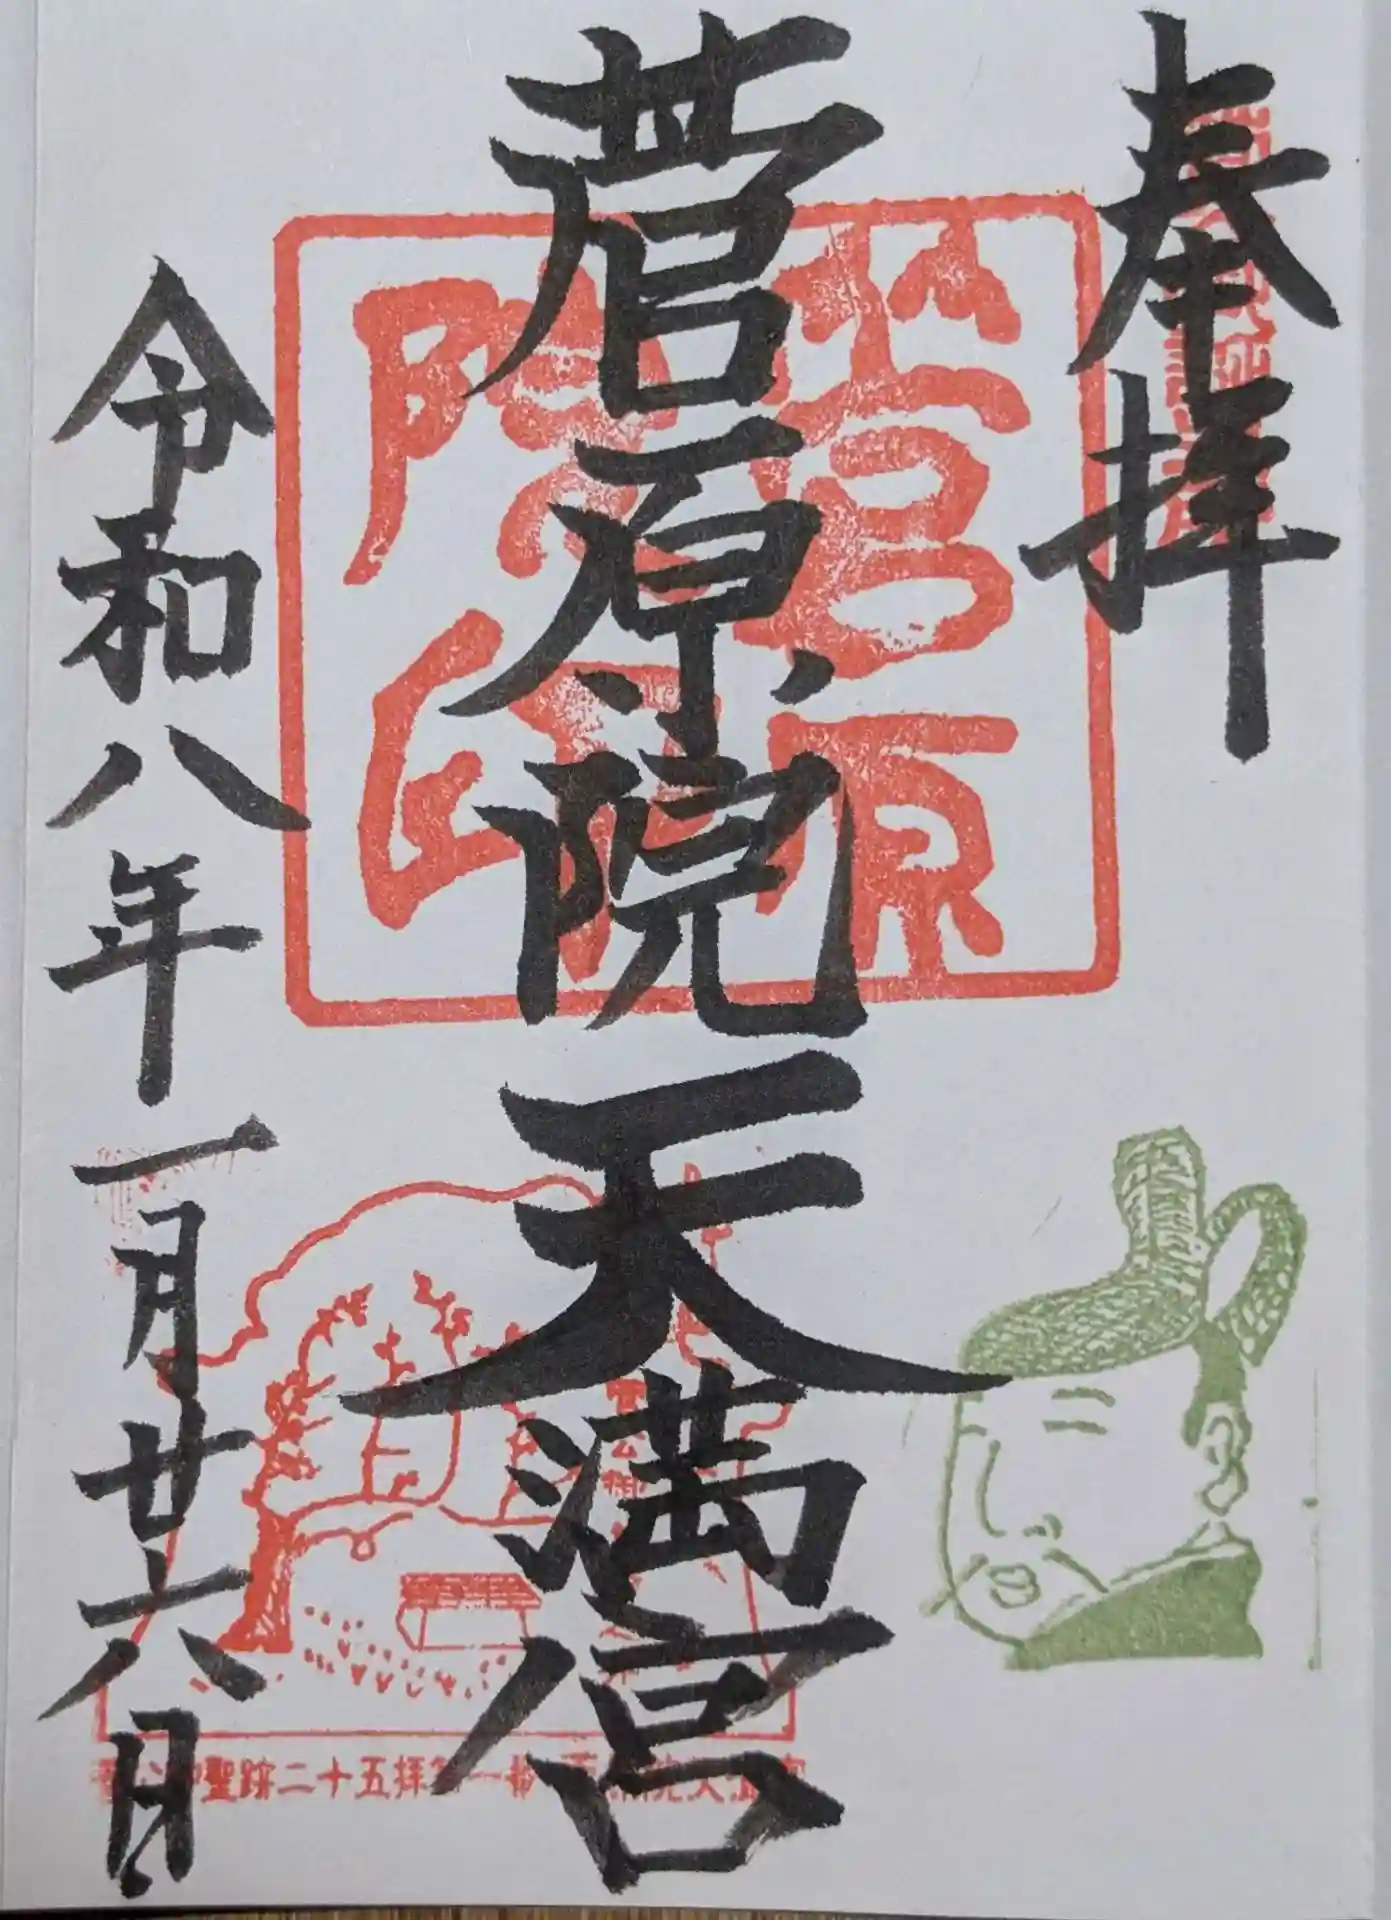 奉拝
菅原院天満宮
令和八年一月廿六日
菅原
院印
聖跡二十五拝第一番菅原院天満宮